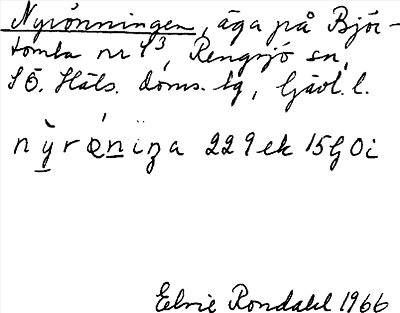 Nyrönningen, äga på Björ-
tomta nr 4³, Rengsjö sn,
S Ö. Häls. doms. tg, Gävl. l.
nỳrǿniŋa 229 ek 15G 0i
Elvie Rondahl 1966